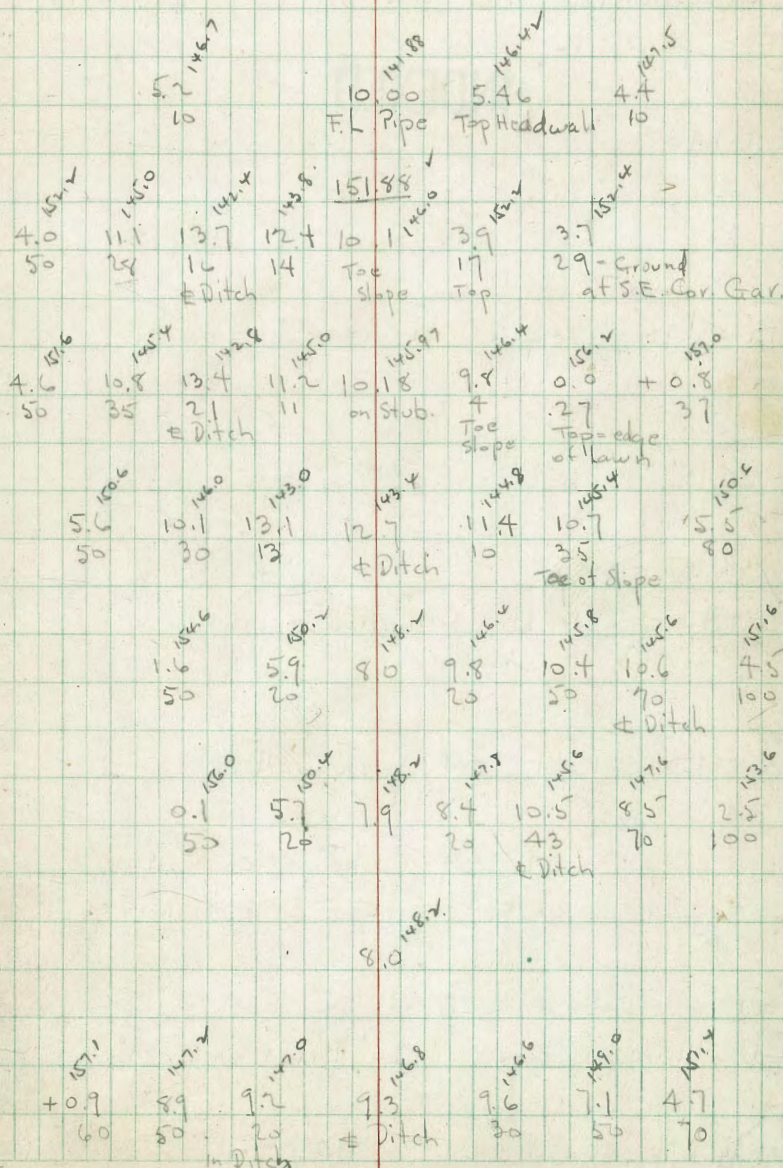 146.7 141.88 146.42 147.5
5.2 10.00 5.46 4.4
10 F.L Pipe Top Headwall 10
151.88
152.2 145.0 142.4 143.8 146.0 152.2 152.4
4.0 11.1 13.7 12.4 10.1 3.9 3.7
50 28 16 14 Toe 17 29 - Ground
℄ Ditch Slope Top at S.E. Cor. Gar.
151.6 145.4 142.8 145.0 145.97 146.4 156.2 157.0
4.6 10.8 13.4 11.2 10.18 9.8 0.0 + 0.8
50 35 21 11 on Stub. 4 27 37
℄ Ditch Toe Top = edge
Slope of Lawn
150.6 146.0 143.0 143.4 144.8 145.4 150.6
5.6 10.1 13.1 12.7 11.4 10.7 5.5
50 30 13 ℄ Ditch 10 35 80
Toe of Slope
154.6 150.2 148.2 146.4 145.8 145.6 151.6
1.6 5.9 8.0 9.8 10.4 10.6 4.5
50 20 20 50 70 100
℄ Ditch
156.0 150.4 148.2 147.8 145.6 147.6 153.6
0.1 5.7 7.9 8.4 10.5 8.5 2.5
50 20 20 43 70 100
℄ Ditch
148.2
8.0
157.1 147.2 147.0 146.8 146.6 149.0 151.4
+0.9 8.9 9.2 9.3 9.6 7.1 4.7
60 50 20 ℄ Ditch 30 50 70
In Ditch